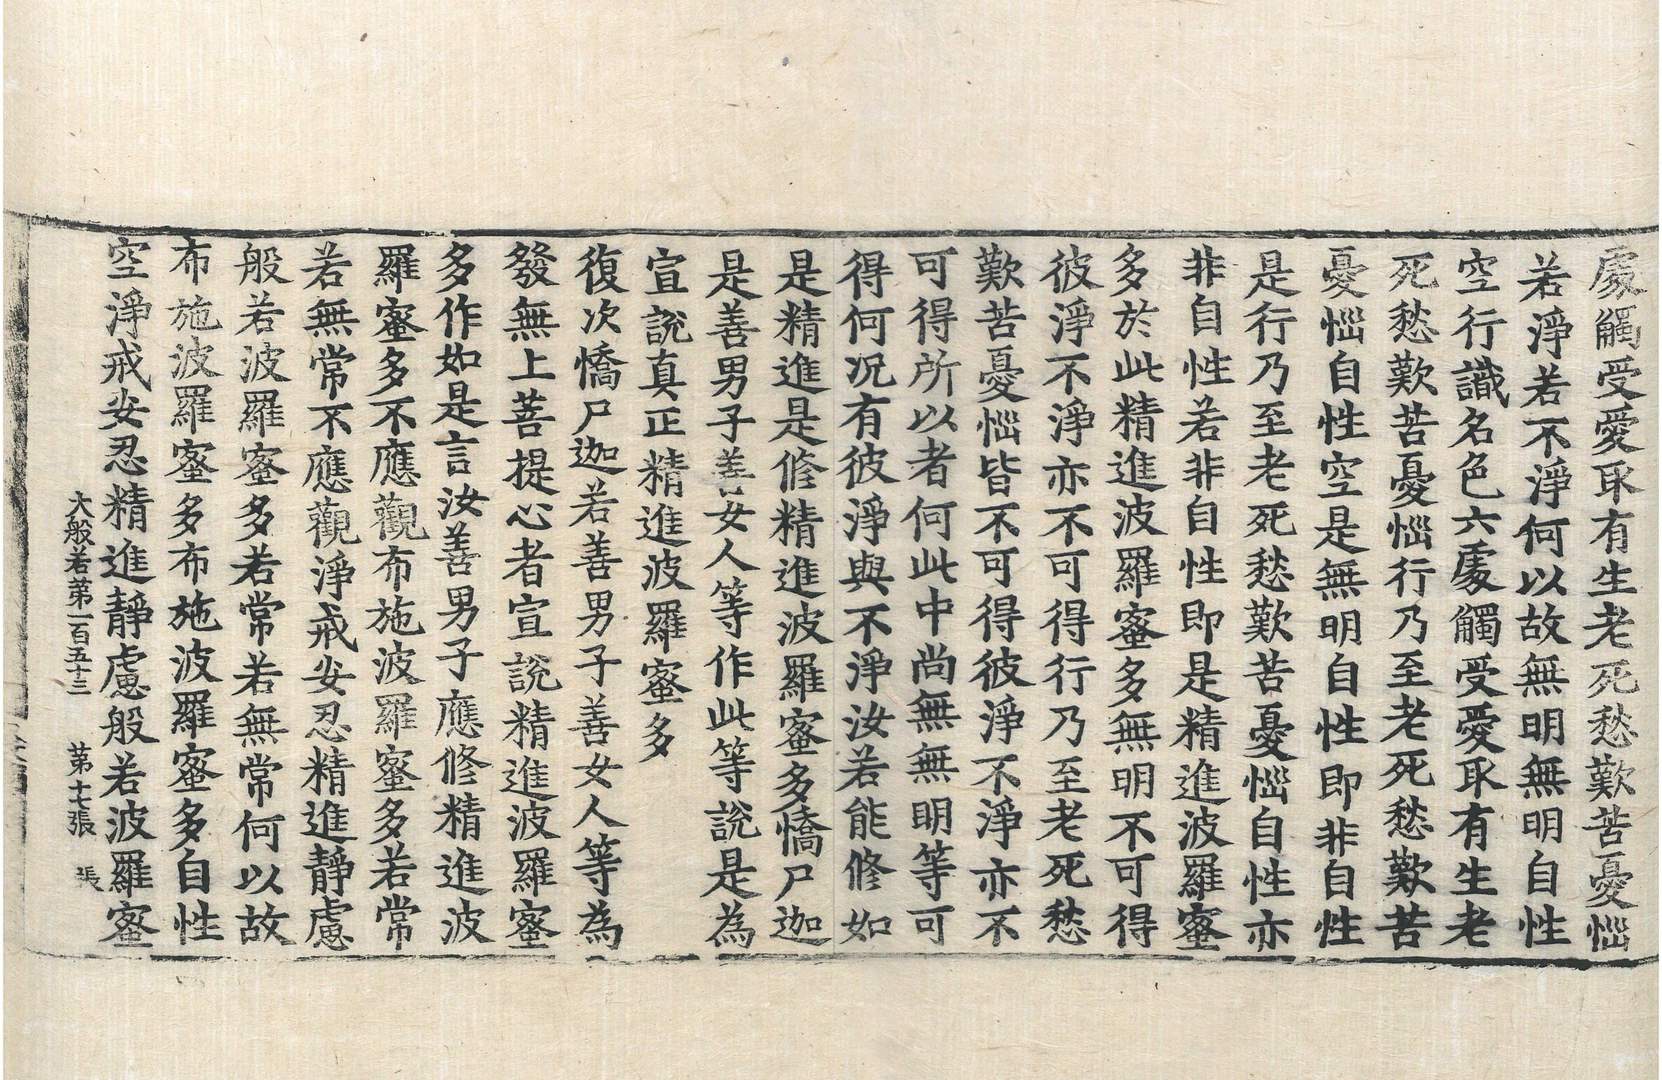 處觸受愛取有生老死愁歎苦憂惱
若淨若不淨何以故無明無明自性
空行識名色六處觸受愛取有生老
死愁歎苦憂惱行乃至老死愁歎苦
憂惱自性空是無明自性即非自性
是行乃至老死愁歎苦憂惱自性亦
非自性若非自性即是精進波羅蜜
多於此精進波羅蜜多無明不可得
彼淨不淨亦不可得行乃至老死愁
歎苦憂惱皆不可得彼淨不淨亦不
可得所以者何此中尚無無明等可
得何況有彼淨與不淨汝若能修如
是精進是修精進波羅蜜多憍尸迦
是善男子善女人等作此等說是為
宣說真正精進波羅蜜多
復次憍尸迦若善男子善女人等為
發無上菩提心者宣說精進波羅蜜
多作如是言汝善男子應修精進波
羅蜜多不應觀布施波羅蜜多若常
若無常不應觀淨戒安忍精進靜慮
般若波羅蜜多若常若無常何以故
布施波羅蜜多布施波羅蜜多自性
空淨戒安忍精進靜慮般若波羅蜜
大般若第一百五十三 第十七張 張